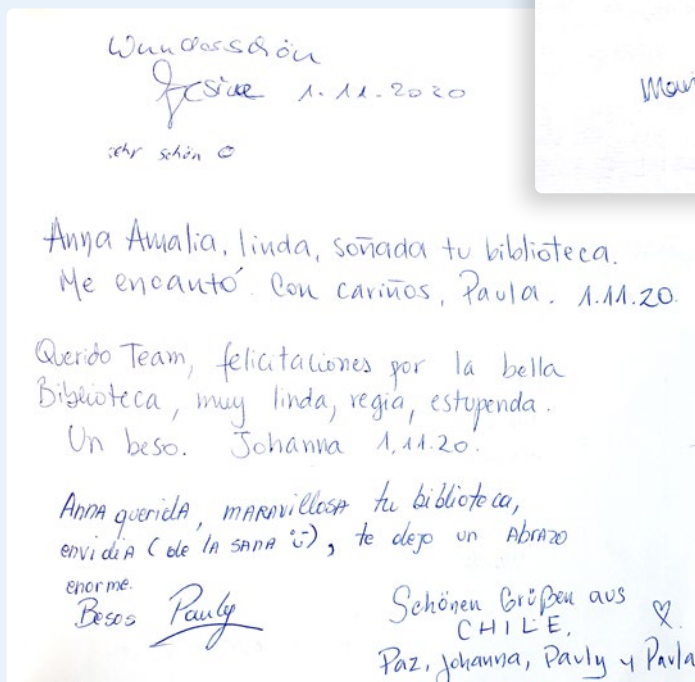 Wunderschön
1.11.2020
sehr schön
Anna Amalia, linda, soñada tu biblioteca.
Me encantó. Con cariños, Paula. 1.11.20.
Querido Team, felicitaciones por la bella
Biblioteca, muy linda, regia, estupenda.
Un beso. Johanna 1.11.20.
Anna queridA, mARAvillosA tu biblioteca,
envidiA (de lA sAnA ), te dejo un AbrAzo
enorme.
Besos Pauly
Schönen Grüßen aus
CHILE,
Paz, Johanna, Pauly y Paula